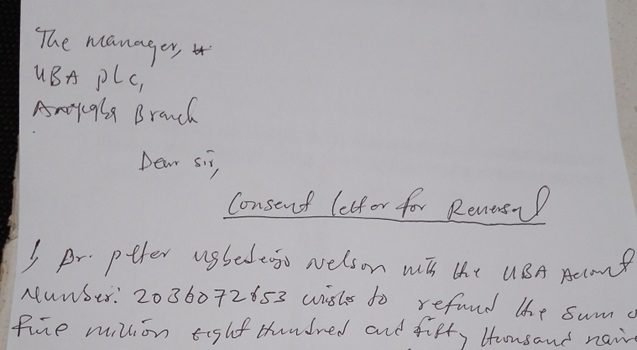 The manager,
UBA plc,
Anyigba Branch
Dear sir,
Consent letter for Reversal
I, Dr. peter Nelson with the UBA Account
Number: 2036072653 wishes to refund the sum
five million eight Hundred and fifty thousand